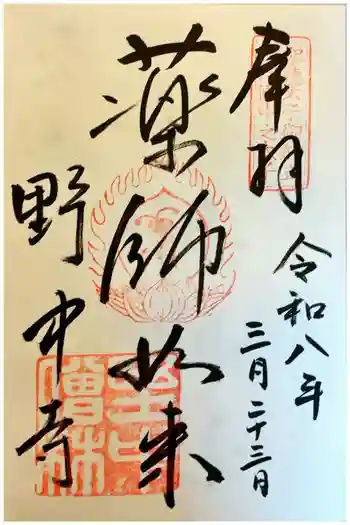 奉拝
令和八年
三月二十三日
薬師如来
野中寺